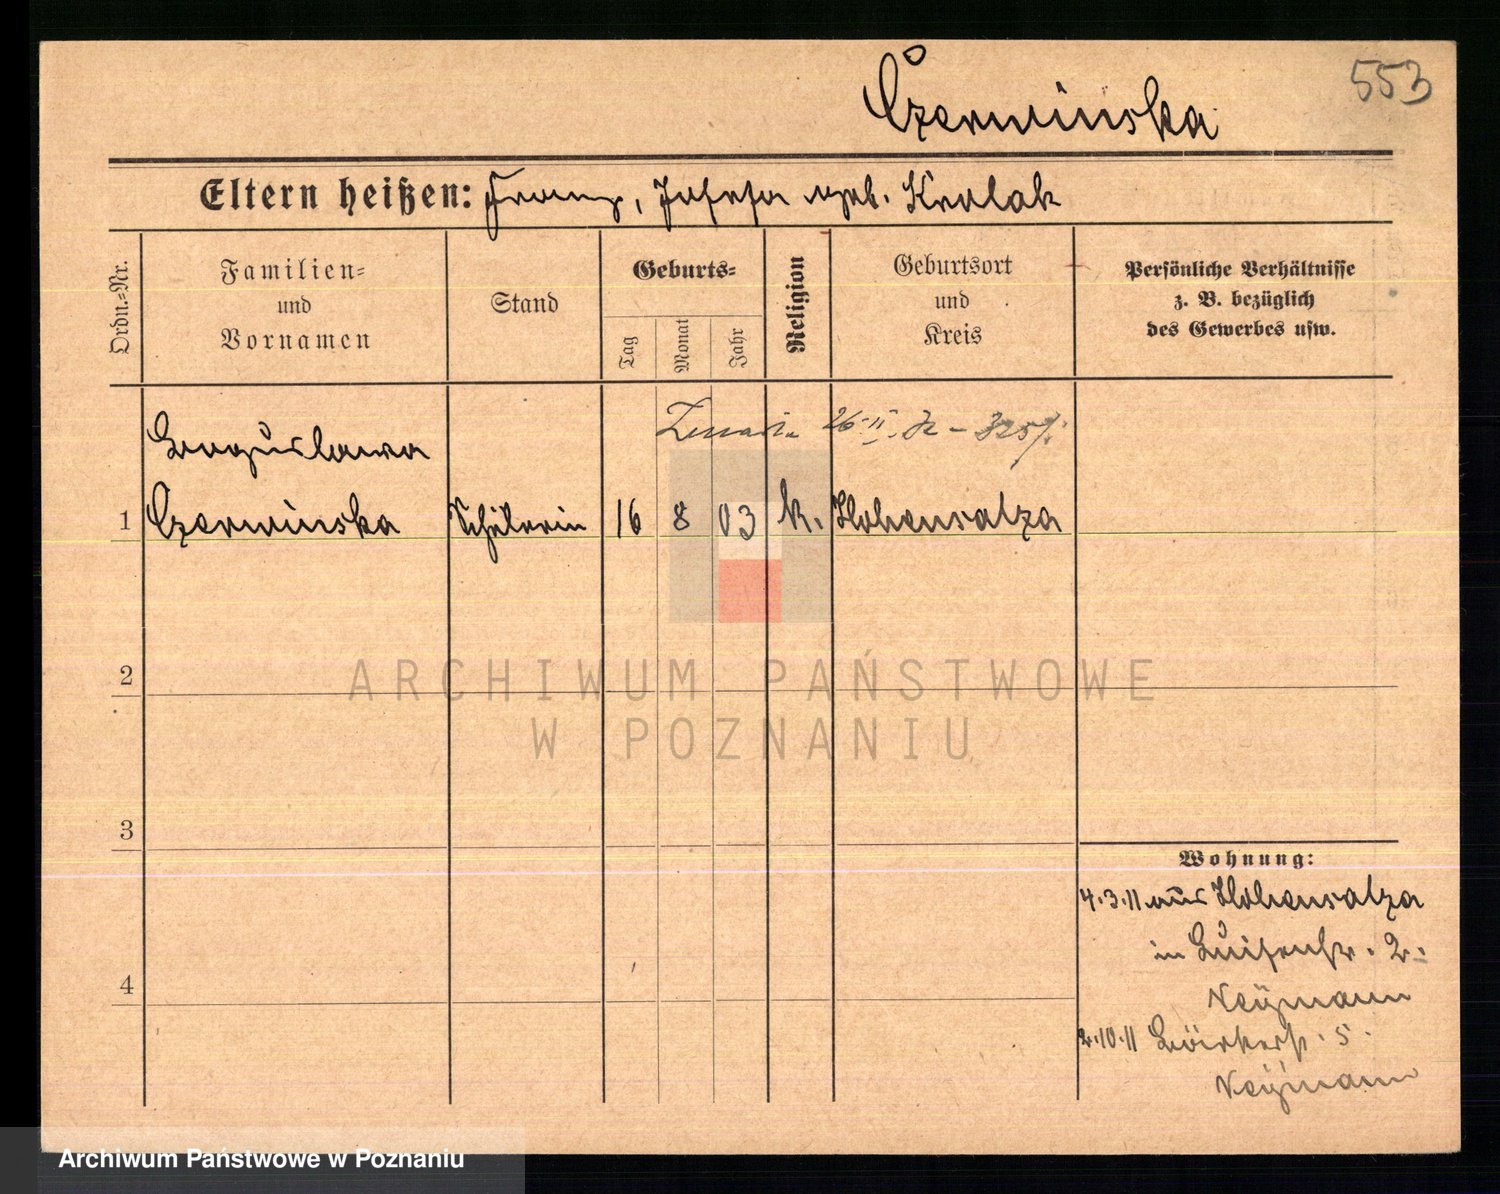 Czerwinska
553
Eltern heißen: Franz, Josefa geb. Kralak
Ordn.=Nr.
Familien=
und
Vornamen
Stand
Geburts=
Tag
Monat
Jahr
Religion
Geburtsort
und
Kreis
Persönliche Verhältnisse
z. B. bezüglich
des Gewerbes usw.
26-II-
Boguslawa
1 Czerwinska Schülerin 16 8 03 k. Hohensalza
2
ARCHIWUM PAŃSTWOWE
W POZNANIU
3
Wohnung:
4.3.11 aus Hohensalza
in Luisenstr. 2.
Neymann
4
2.10.11 5.
Neymann
Archiwum Państwowe w Poznaniu